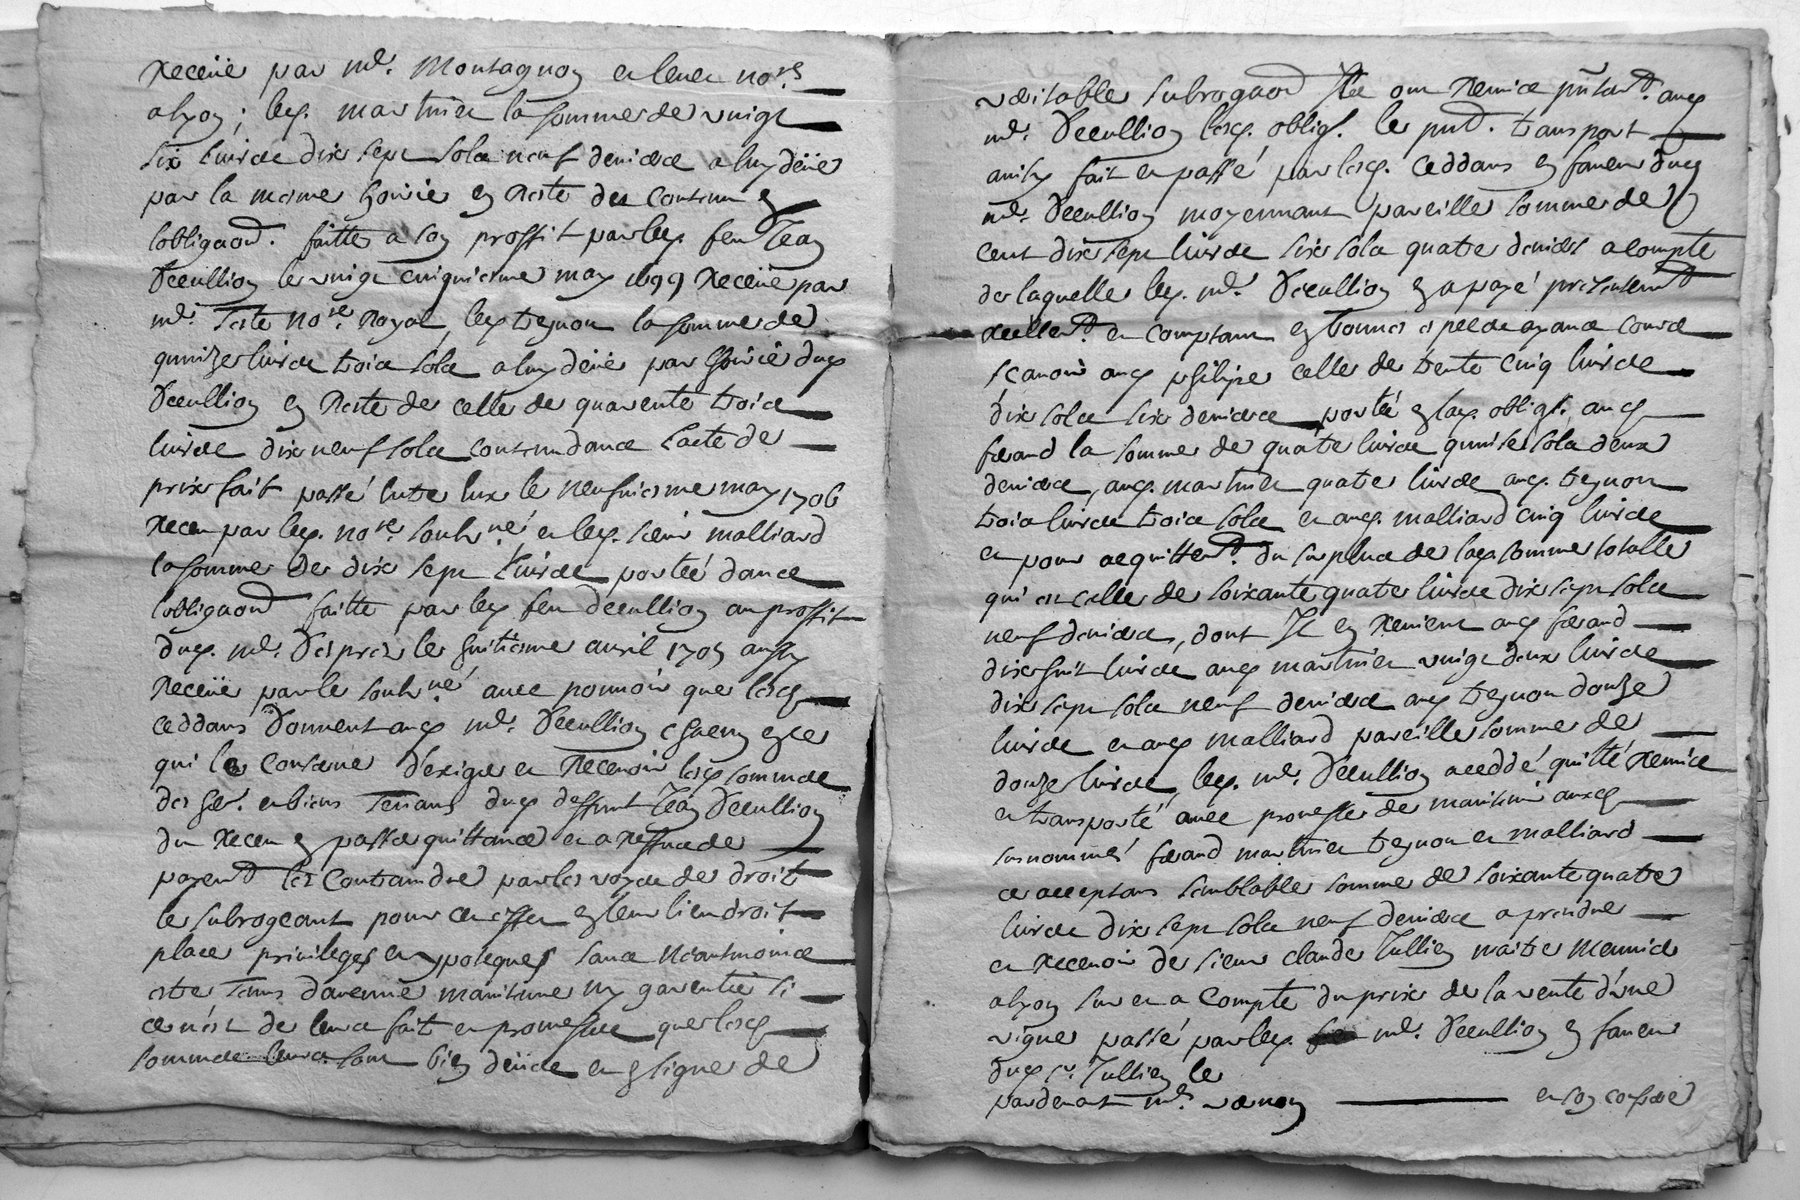 Receüe par me. Montagnon et lenée nores
a lyon; led. martinier la somme de vingt
six livres dix sept sols neuf deniers a luy deüe
par la mesme hoirie en Reste du contenu en
lobligaōn. faitte a son proffit par led. feu Jean
Decullion le vingt cinquiesme may 1699 Receüe par
me. Teste nore. Royal, led. treynon la somme de
quinze livres trois sols a luy deüe par hoirie dud.
Decullion en Reste de celle de quarente trois
livres dix neuf sols contenu dans lacte de
prix fait passé entre eux le neufviesme may 1706
Receu par led. nore. soubs.né et led. sieur malliard
la somme de dix sept livres portée dans
lobligaōn faitte par led. feu Decullion au proffit
dud. me. Desprez le huitiesme avril 1705 aussy
Receüe par le soubs.né avec pouvoir que lesd.
ceddans donnent aud. me. Decullion chacun en ce
qui le conserne d'exiger et Recevoir lesd. sommes
des her. et biens tenans dud. deffunt Jean Decullion
du Receu en passer quittance et a Reffus de
payemt. les contraindre par les voyes de droit
le subrogeant pour cet effet en leur lieu droit
place privileges et ypoteques sans neantmoins
estre tenus d'aucune maintenue ny garentie si
ce n'est de leurs faits et promesses que lesd.
sommes leurs sont bien deües et en signe de
veritable subrogaōn Ils ont Remis pñtemt. aud.
me. Decullion lesd. obligs. le pñt. transport
ainsy fait et passé par lesd. ceddans en faveur dud.
me. Decullion moyennant pareille somme de
cent dix sept livres six sols quatre deniers a compte
de laquelle led. me. Decullion en a payé presentemt.
reellemt. et comptant en bonnes especes ayans cours
sçavoir aud. philipe celle de trente cinq livres
dix sols six deniers portée en lad. obligs. aud.
ferand la somme de quatre livres quinse sols deux
deniers, aud. martinier quatre livres aud. treynon
trois livres trois sols et aud. malliard cinq livres
et pour acquittemt. du surplus de lad. somme totalle
qui est celle de soixante quatre livres dix sept sols
neuf deniers, dont Il en Revient aud. ferand
dix huit livres aud. martinier vingt deux livres
dix sept sols neuf deniers aud. treynon douze
livres et aud. malliard pareille somme de
douze livres, led. me. Decullion a ceddé quitté Remis
et transporté avec promesse de maintenir auxd.
susnommés ferand martinier treynon et malliard
ce acceptans semblable somme de soixante quatre
livres dix sept sols neuf deniers a prendre
et Recevoir de sieur claude Jullien maitre
a lyon sur et a compte du prix de la vente d'une
vigne passé par led. me. Decullion en faveur
dud. sr. Jullien le
pardevant me.